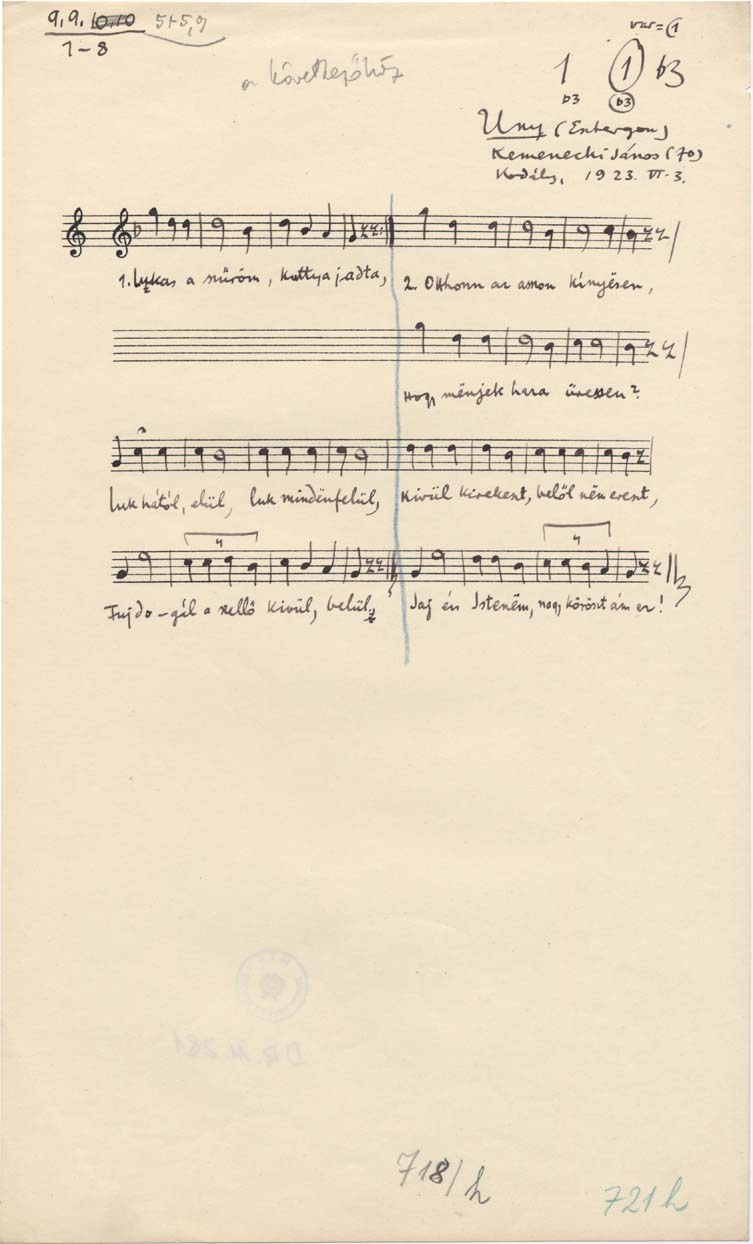 9.9. 10,10 5+5,9
1-8
a következőhöz
var = 1
1 1 b3
b3 b3
Uny (Esztergom)
Kemenecki János (70)
Kodály, 1923. VI. 3.
1. Lukas a szűröm, kuttya jadta, 2. Otthonn az asszon kínyésen,
Hogy ménjek haza üressen?
Luk hától, elül, luk mindënfelül, Kivül kirekent, belől nëm erent,
Fujdo-gál a szellő kivül, belül, Jaj én Istenëm, nagy köröszt ám ez!
4 4
718/h
721h